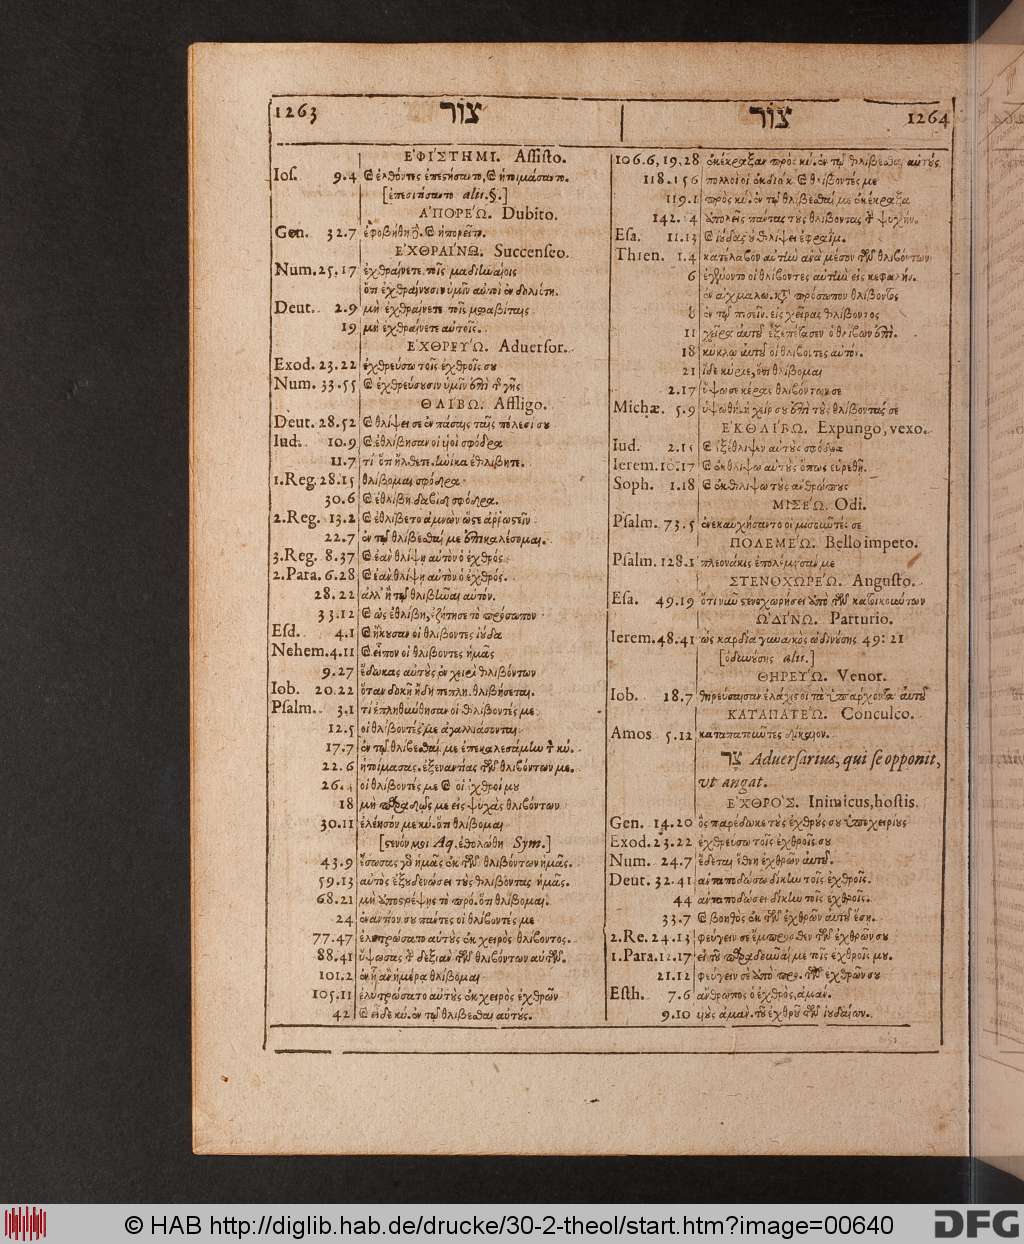 1263 צור
ἘΦΙΣΤΗΜΙ. Assisto.
Ios. 9.4 καὶ ἐλθόντες ἐπεσιτίσαντο, καὶ ἡτοιμάσαντο.
[ἐπεσιτίσαντο alii.§.]
ἈΠΟΡΕΏ. Dubito.
Gen. 32.7 ἐφοβήθη καὶ ἠπορεῖτο.
ἘΧΘΡΑΊΝΩ. Succenseo.
Num. 25.17 ἐχθραίνετε τοῖς μαδιωαίοις
ὅτι ἐχθραίνουσιν ὑμῖν αὐτοὶ ἐν δολιότη.
Deut. 2.9 μὴ ἐχθραίνετε τοῖς μωαβίταις
19 μὴ ἐχθραίνετε αὐτοῖς.
ἘΧΘΡΕΥΏ. Aduersor.
Exod. 23.22 ἐχθρεύσω τοῖς ἐχθροῖς σου
Num. 33.55 καὶ ἐχθρεύσουσιν ὑμῖν ἐπὶ τῆς γῆς
ΘΛΙΒΩ. Affligo.
Deut. 28.52 καὶ θλίψει σε ἐν πάσαις ταῖς πόλεσί σου
Iud. 10.9 καὶ ἐθλίβησαν οἱ υἱοὶ σφόδρα
11.7 τί ὅτι ἤλθετε ἡνίκα ἐθλίβητε.
1.Reg. 28.15 θλίβομαι σφόδρα
30.6 καὶ ἐθλίβη δαβὶδ σφόδρα.
2.Reg. 13.2 καὶ ἐθλίβετο ἀμνὼν ὥστε ἀρρωστεῖν
22.7 ἐν τῷ θλίβεσθαί με ἐπικαλέσομαι.
3.Reg. 8.37 καὶ ἐὰν θλίψη αὐτὸν ὁ ἐχθρός
2.Para. 6.28 καὶ ἐὰν θλίψη αὐτὸν ὁ ἐχθρός.
28.22 ἀλλ' ἢ τῷ θλιβῆναι αὐτόν.
33.12 καὶ ὡς ἐθλίβη, ἐζήτησε τὸ πρόσωπον
Esd. 4.1 καὶ ἤκουσαν οἱ θλίβοντες ἰούδα
Nehem. 4.11 καὶ εἶπον οἱ θλίβοντες ἡμᾶς
9.27 ἔδωκας αὐτοὺς ἐν χειρὶ θλιβόντων
Iob. 20.22 ὅταν δοκῇ ἤδη πεπλη. θλιβήσεται.
Psalm. 3.1 τί ἐπληθύνθησαν οἱ θλίβοντές με
12.5 οἱ θλίβοντές με ἀγαλλιάσονται
17.7 ἐν τῷ θλίβεσθαί με ἐπεκαλεσάμην τὸν κύ.
22.6 ἡτοίμασας. ἐξεναντίας τῶν θλιβόντων με.
οἱ θλίβοντές με καὶ οἱ ἐχθροί μου
18 μὴ παραδῷς με εἰς ψυχὰς θλιβόντων
30.11 ἐλέησόν με κύ. ὅτι θλίβομαι
[στενόν μοι Aq. ἐθολώθη Sym.]
43.9 ἔσωσας γὰρ ἡμᾶς ἐκ τῶν θλιβόντων ἡμᾶς.
59.13 αὐτὸς ἐξουδενώσει τοὺς θλίβοντας ἡμᾶς.
68.21 μὴ ἀποστρέψῃς τὸ πρό. ὅτι θλίβομαι.
24 ἐναντίον σου πάντες οἱ θλίβοντές με
77.47 ἐλυτρώσατο αὐτοὺς ἐκ χειρὸς θλίβοντος.
88.41 ὕψωσας τὴν δεξιὰν τῶν θλιβόντων αὐτόν.
101.2 ἐν ᾗ ἂν ἡμέρᾳ θλίβομαι
105.11 ἐλυτρώσατο αὐτοὺς ἐκ χειρὸς ἐχθρῶν
42 καὶ εἶδε κύ. ἐν τῷ θλίβεσθαι αὐτούς.
צור 1264
106.6,19.28 ἐκέκραξαν πρὸς κύ. ἐν τῷ θλίβεσθαι αὐτούς
118.156 πολλοὶ οἱ ἐκδιώκ. καὶ θλίβοντές με
119.1 πρὸς κύ. ἐν τῷ θλίβεσθαί με ἐκέκραξα
142. ἀπολεῖς πάντας τοὺς θλίβοντας τὴν ψυχήν.
Esa. 11.13 καὶ ἰούδας οὐ θλίψει ἐφραΐμ.
Thren. 1.4 κατέλαβον αὐτὴν ἀνὰ μέσον τῶν θλιβόντων
6 ἐγένοντο οἱ θλίβοντες αὐτὴν εἰς κεφαλήν.
ἐν αἰχμαλω. κατὰ πρόσωπον θλίβοντος
8 ἐν τῷ πεσεῖν. εἰς χεῖρας θλίβοντος
11 χεῖρα αὐτοῦ ἐξεπέτασεν ὁ θλίβων ἐπὶ.
18 κύκλῳ αὐτοῦ οἱ θλίβοντες αὐτόν.
21 ἴδε κύριε, ὅτι θλίβομαι
2.17 ὕψωσε κέρας θλιβόντων σε
Michæ. 5.9 ὑψωθήτη χείρ σου ἐπὶ τοὺς θλίβοντάς σε
ἘΚΘΛΙΒΩ. Expungo, vexo.
Iud. 2.15 καὶ ἐξέθλιψεν αὐτοὺς σφόδρα
Ierem. 10.17 καὶ ἐκθλίψω αὐτοὺς ὅπως εὑρεθῇ.
Soph. 1.18 καὶ ἐκθλίψω τοὺς ἀνθρώπους
ΜΙΣΕΏ. Odi.
Psalm. 73.5 ἐνεκαυχήσαντο οἱ μισοῦντές σε
ΠΟΛΕΜΕΏ. Bello impeto.
Psalm. 128.1 πλεονάκις ἐπολέμησάν με
ΣΤΕΝΟΧΩΡΕΏ. Angusto.
Esa. 49.19 ὅτι νῦν στενοχωρήσει ἀπὸ τῶν κατοικούντων
ὨΔΙΝΩ. Parturio.
Ierem. 48.41 ὡς καρδία γυναικὸς ὠδινούσης 49:21
[ὀδυνούσης alii.]
ΘΗΡΕΥΏ. Venor.
Iob. 18.7 θηρεύσαισαν ἐλάχιστοι τὰ ὑπάρχοντα αὐτοῦ
ΚΑΤΑΠΑΤΕΏ. Conculco.
Amos 5.12 καταπατοῦντες δίκαιον.
צר Aduersarius, qui se opponit,
vt angat.
ἘΧΘΡΌΣ. Inimicus, hostis.
Gen. 14.20 ὃς παρέδωκε τοὺς ἐχθρούς σου ὑποχειρίους
Exod. 23.22 ἐχθρεύσω τοῖς ἐχθροῖς σου
Num. 24.7 ἔδεται ἔθνη ἐχθρῶν αὐτοῦ.
Deut. 32.41 ἀνταποδώσω δίκην τοῖς ἐχθροῖς.
44 ἀνταποδώσει δίκην τοῖς ἐχθροῖς.
33.7 καὶ βοηθὸς ἐκ τῶν ἐχθρῶν αὐτοῦ ἔση.
2.Re. 24.13 φεύγειν σε ἔμπροσθεν τῶν ἐχθρῶν σου
1.Para. 12.17 εἰ τοῦ παραδοῦναί με τοῖς ἐχθροῖς μου.
21.12 φεύγειν σε ἀπὸ προ. τῶν ἐχθρῶν σου
Esth. 7.6 ἄνθρωπος ὁ ἐχθρὸς, ἀμάν.
9.10 υἱοὺς ἀμὰν. τοῦ ἐχθροῦ τῶν ἰουδαίων.
© HAB http://diglib.hab.de/drucke/30-2-theol/start.htm?image=00640
DFG